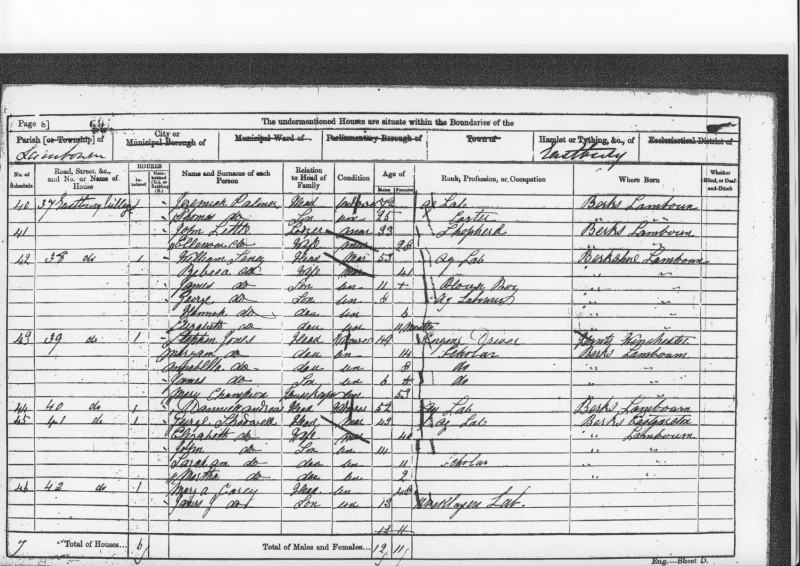 Page 8]
The undermentioned Houses are situate within the Boundaries of the
Parish [or Township] of
City or Municipal Borough of
Municipal Ward of
Parliamentary Borough of
Town of
Hamlet or Tything, &c., of
Ecclesiastical District of
Lambourn
Eastbury
No. of Schedule
Road, Street, &c., and No. or Name of House
HOUSES
Inhabited
Uninhabited (U.), or Building (B.)
Name and Surname of each Person
Relation to Head of Family
Condition
Age of
Males
Females
Rank, Profession, or Occupation
Where Born
Whether Blind, or Deaf-and-Dumb
40 37 Eastbury Village 1 Jeremiah Palmer Head 72 Ag Lab Berks Lambourn
Thomas do Son un 25 Carter " "
41 John Lodger mar 33 Shepherd Berks Lambourn
Ellenor do Wife mar 26 " "
42 38 do 1 William Head Mar 53 Ag Lab Berkshire Lambourn
Rebeca do Wife Mar 41 " "
James do Son un 11 Plough Boy " "
George do Son un 8 Ag Labourer " "
Hannah do dau un 6 " "
Elizabeth do dau un " "
43 39 do 1 Stephen Jones Head Widower 40 Engine Driver Hants Winchester
Maryann do dau un 14 Scholar Berks Lambourn
do dau un 8 do " "
James do Son 6 do " "
Mary Champion Housekeeper 53 " "
44 40 do 1 Head 52 Ag Lab Berks Lambourn
45 41 do 1 George Head Mar 43 Ag Lab Berks
Elizabeth do Wife mar 40 " Lambourn
John do Son un 14 " "
Sarah an do dau un 11 Scholar " "
Martha do dau un 2 " "
46 42 do 1 Mary a Carey Head un " "
James J do Son un 13 Bricklayers Lab " "
12 11
7 Total of Houses... 6 Total of Males and Females... 12 11
Eng.—Sheet D.